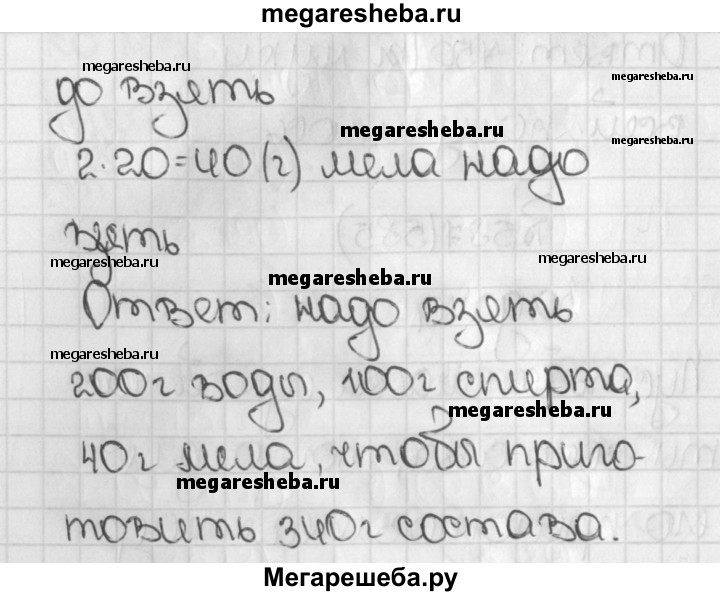 megaresheba.ru
megaresheba.ru
megaresheba.ru
до взять
megaresheba.ru
2·20=40(г) мела надо
взять
megaresheba.ru
megaresheba.ru
megaresheba.ru
Ответ: надо взять
megaresheba.ru
200г воды, 100г спирта,
megaresheba.ru
40г мела, чтобы приго-
megaresheba.ru
товить 340г состава.
Мегарешеба.ру